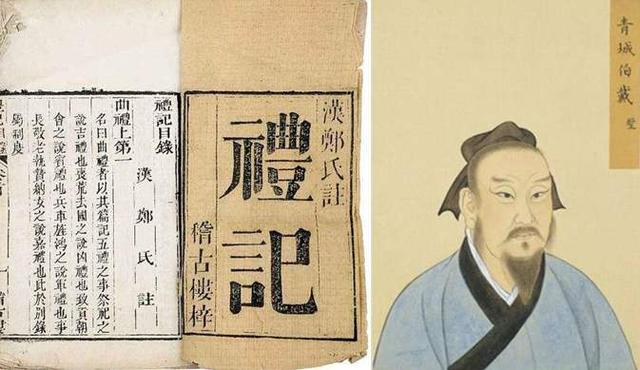 漢鄭氏註
禮記
稽古樓梓
禮記目錄
漢鄭氏註
曲禮上第一
名曰曲禮者以其篇記五禮之事祭祀之
說吉禮也喪荒去國之說凶禮也致貢朝
會之說賓禮也兵車旌鴻之說軍禮也事
長敬老執贄納女之說嘉禮也此於別錄
屬制度
青城伯戴聖